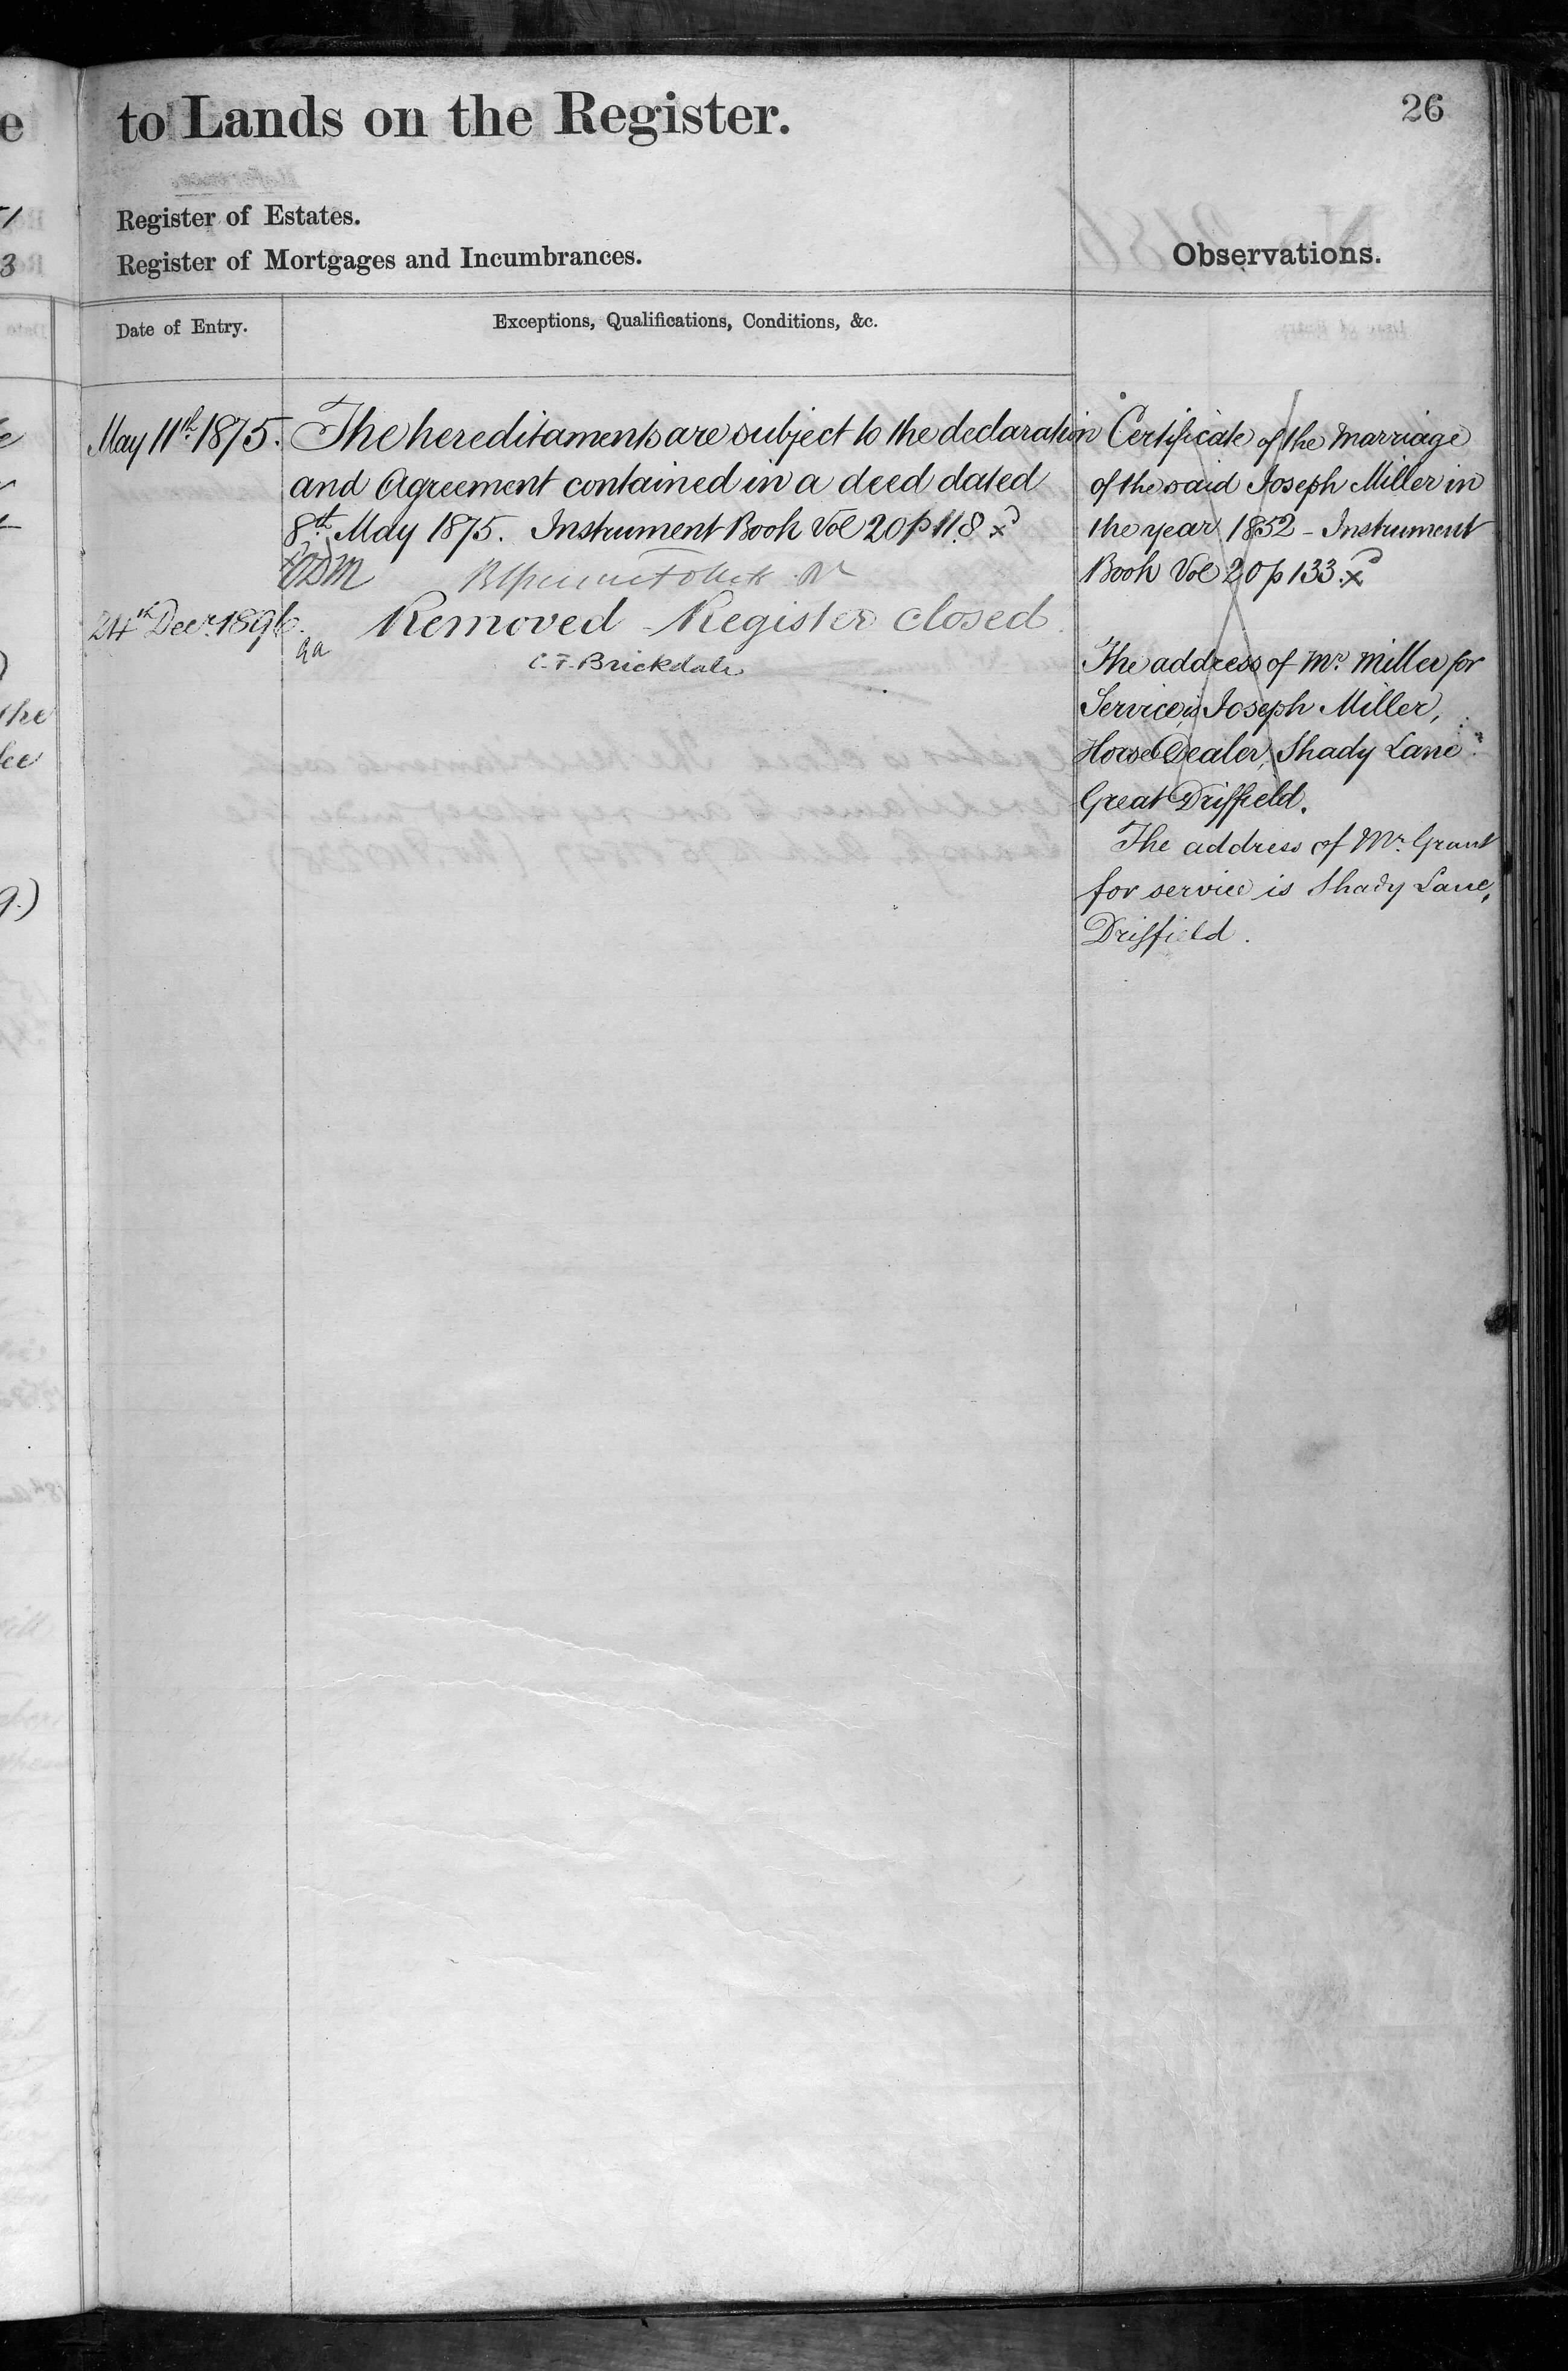 to Lands on the Register.
26
Register of Estates.
Register of Mortgages and Incumbrances.
Observations.
Date of Entry.
Exceptions, Qualifications, Conditions, &c.
May 11th 1875.
The hereditaments are subject to the declaration
and Agreement contained in a deed dated
8th May 1875. Instrument Book Vol 20 p 118
24th Decr. 1896.
Removed Register closed
C. F. Brickdale
Certificate of the Marriage
of the said Joseph Miller in
the year 1852 - Instrument
Book Vol 20 p 133.
The address of Mr. Miller for
Service is Joseph Miller,
Horse Dealer, Shady Lane
Great Driffield.
The address of Mr. Grant
for service is Shady Lane,
Driffield.